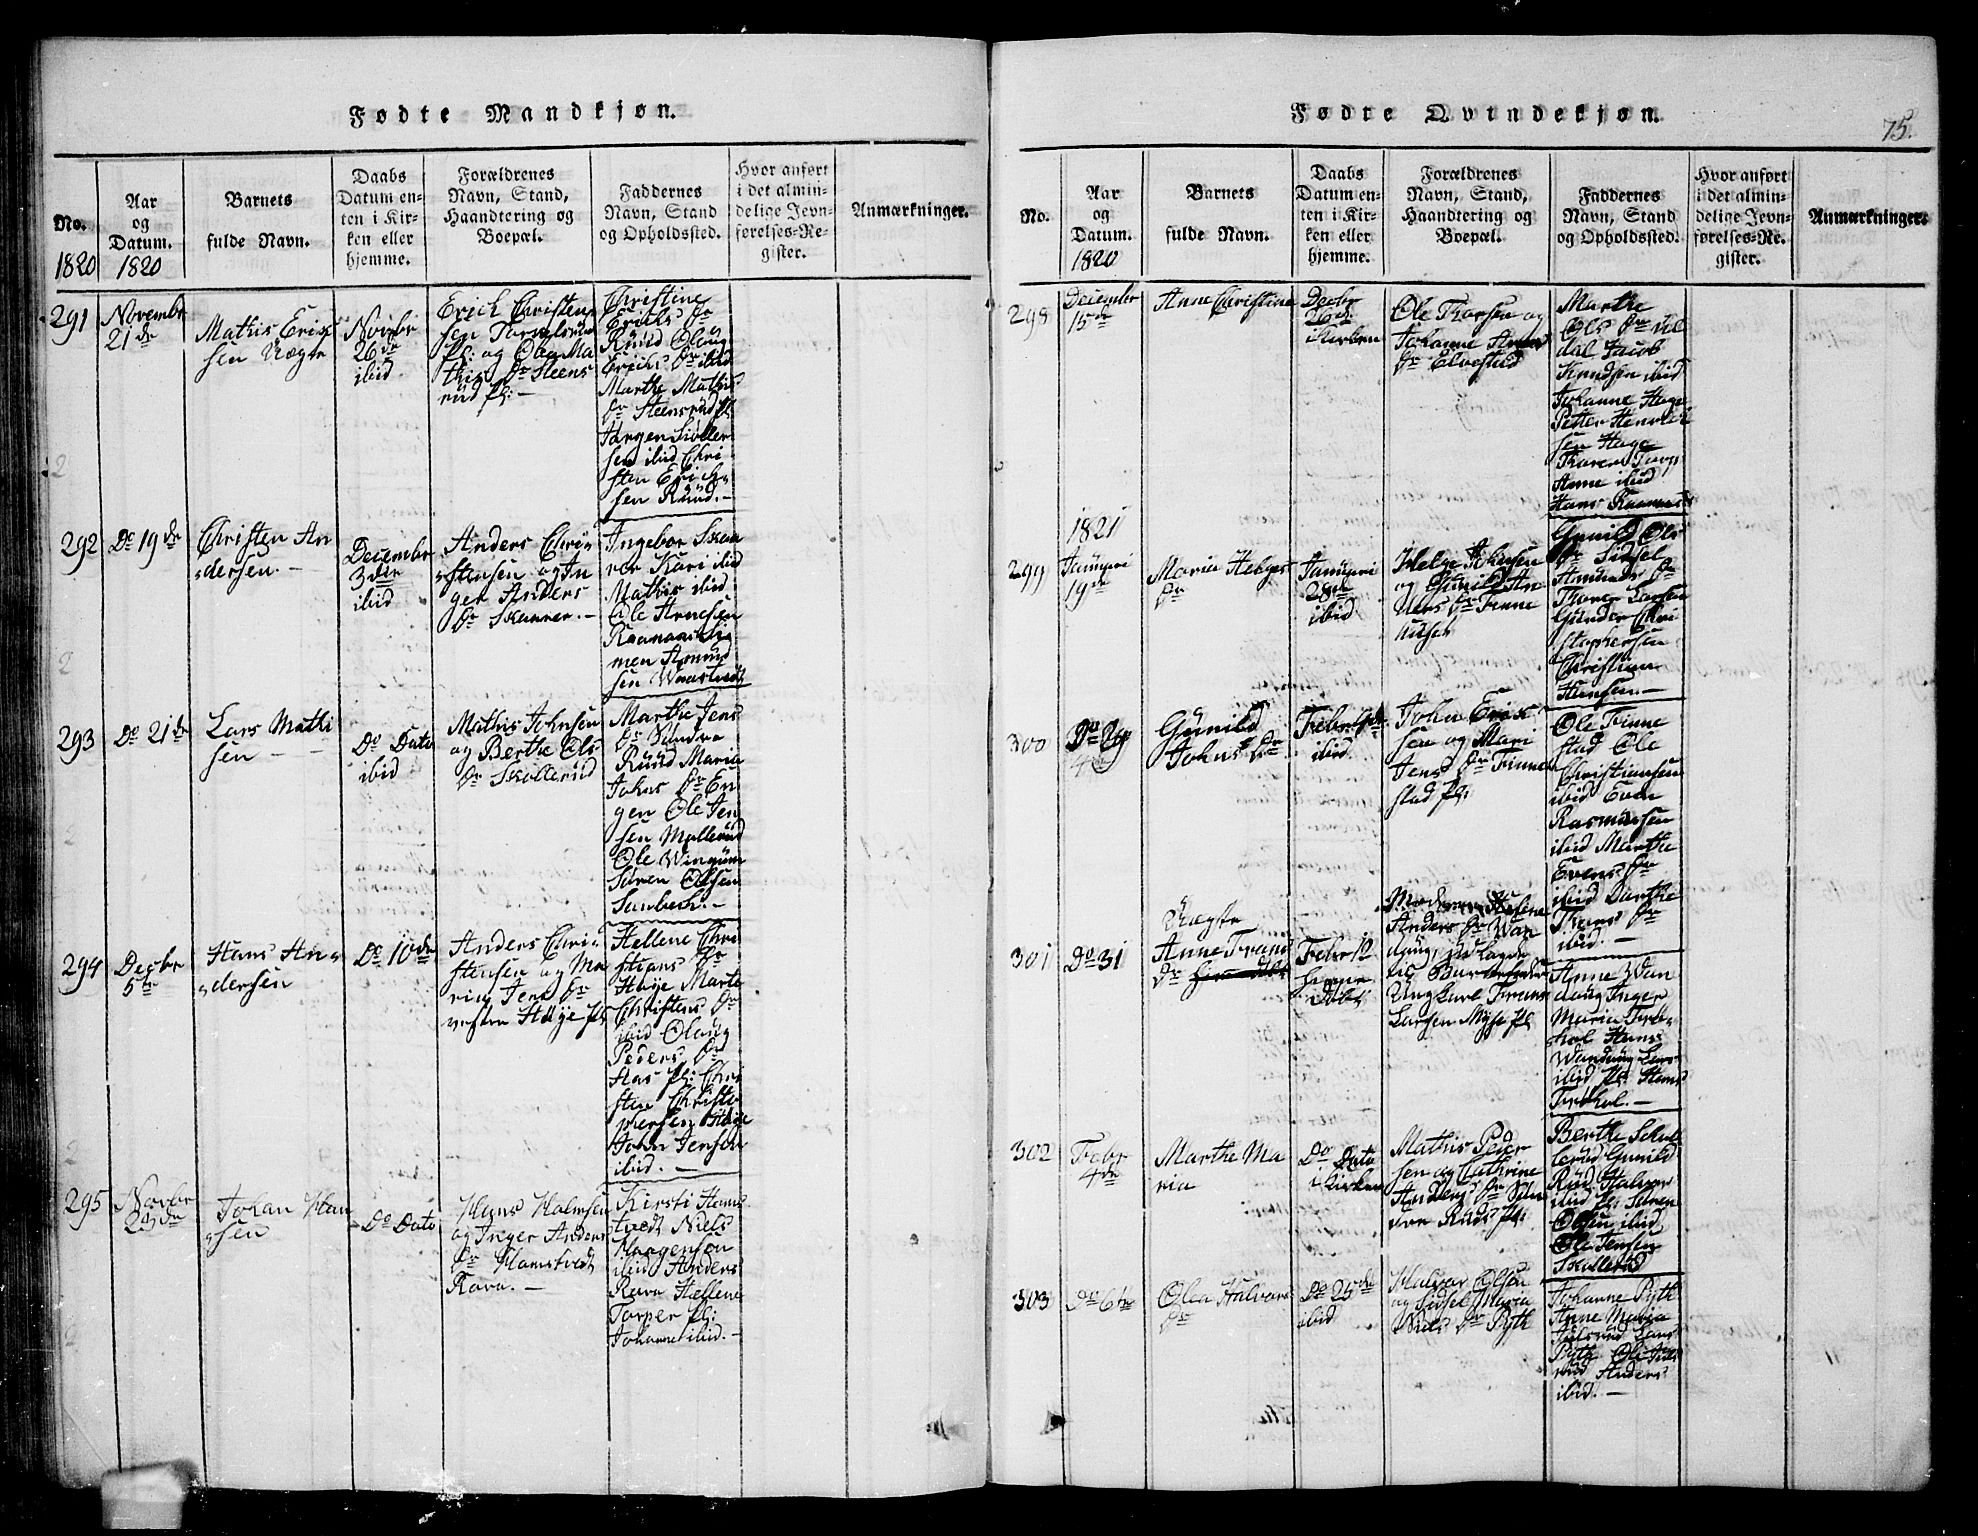 Fødte Mandkjøn.
No.
1820
Aar
og
Datum.
1820
Barnets
fulde Navn.
Daabs
Datum en-
ten i Kir-
ken eller
hjemme.
Forældrenes
Navn, Stand,
Haandtering og
Boepæl.
Faddernes
Navn, Stand
og Opholdssted.
Hvor anført
i det almin-
delige Jevn-
førelses-Re-
gister.
Anmærkninger.
291
Novembr
21de
Mathis Erich
sen Uægte
Novbr
26de
ibid
Erich Christen
sen
pl: og Olea Ma
this Dr Steens
rud pl: –
Christine
Erichs Dr
Ruud Olaug
Erichs Dr ibid
Marthe Mathis
Dr Steensrud pl
Jørgen
sen ibid Chri
sten Erich
sen Ruud. –
292
Do 19de
Christen An
dersen. –
Decembr
3die
ibid
Anders Chri
stensen og In
ger Anders
Dr Skanner. –
Ingebor Skan
ner Kari ibid
Mathis ibid
Ole Arnesen
Raanaas Si
men Asmund
sen
293
Do 21de
Lars Mathi
sen –
Do Dato
ibid
Mathis Johnsen
og Berthe Ols
Dr Skollerud
Marthe Jens
Dr Søndre
Ruud Maria
Johns Dr En
gen Ole Jen
sen Mollerud
Ole Wingum
Søren Olsen
–
294
Decbr
5te
Hans An
dersen
Do 10de
Anders Chri
stensen og Ma
rin Jens Dr
vestre Høije pl
Hellene Chri
stians Dr
Høije Marte
Christens Dr
ibid Olaug
Peders Dr
Aas pl: Chri
sten Christo
phersen Høije
John Jensen
ibid. –
295
Novbr
Johan Han
sen
Do Dato
Hans Halmsen
og Inger Anders
Dr Hamstvedt
Ravn. –
Kirsti Hams
tvedt Niels
Haagensen
ibid Anders
Ravn Hellene
Torper pl:
Johanne ibid. –
Fødte Qvindekjøn.
75.
No.
Aar
og
Datum.
1820
Barnets
fulde Navn.
Daabs
Datum en-
ten i Kir-
ken eller
hjemme.
Forældrenes
Navn, Stand,
Haandtering og
Boepæl.
Faddernes
Navn, Stand
og Opholdssted.
Hvor anført
i det almin-
delige Jevn-
førelses-Re-
gister.
Anmærkninger.
298
Decembr
15de
Anne Christine
Decbr
26de
i Kirken
Ole Thorsen og
Johanne
Dr Elvestad
Marthe
Ols Dr Ul
dal Jacob
Knudsen ibid
Johanne Hage
Petter Henrich
sen Hage
Thorer Torp
Anne ibid
Hans
1821
299
Januari
19de
Maria Helges
Dr
Januari
28de
ibid
Helge Johnsen
og Gunild An
ders Dr Finne
Gunild Ols
Dr Sidsel
Amunds Dr
Thorer Larsen
Gunder Chri
stophersen
Christian
Hansen. –
300
Gunild
Johns Dr
ibid
John Erich
sen og Mari
Jens Dr Finne
stad pl:
Ole Finne
stad Ole
Christiansen
ibid Even
Rasmusen
ibid Marthe
Evens Dr
ibid Dorthe
Dr
ibid. –
301
Do 31
Uægte
Anne Frans
Dr
hjemme
døbt
Anders Dr Wan
dung,
Ungkarl Frans
Larsen Myse pl
Anne Wan
dung Inger
Maria
Hans
Wandung Lars
ibid pl: Hans
–
302
Febr
4de
Marthe Ma
ria
Do Dato
i Kirken
Mathis Peder
sen og Cathrine
Anders Dr
Ruds pl:
Berthe
Gunild
Rud Halvor
ibid pl: Søren
Olsen ibid
Ole Jensen
Skollerud
303
Do 6te
Olea Halvors
Dr
Do 25de
ibid
Halvor Olsen
og Sidsel Maria
Niels Dr Pyth
Johanne Pyth
Anne Maria
Lars
Pyth Ole
Anders
ibid. –